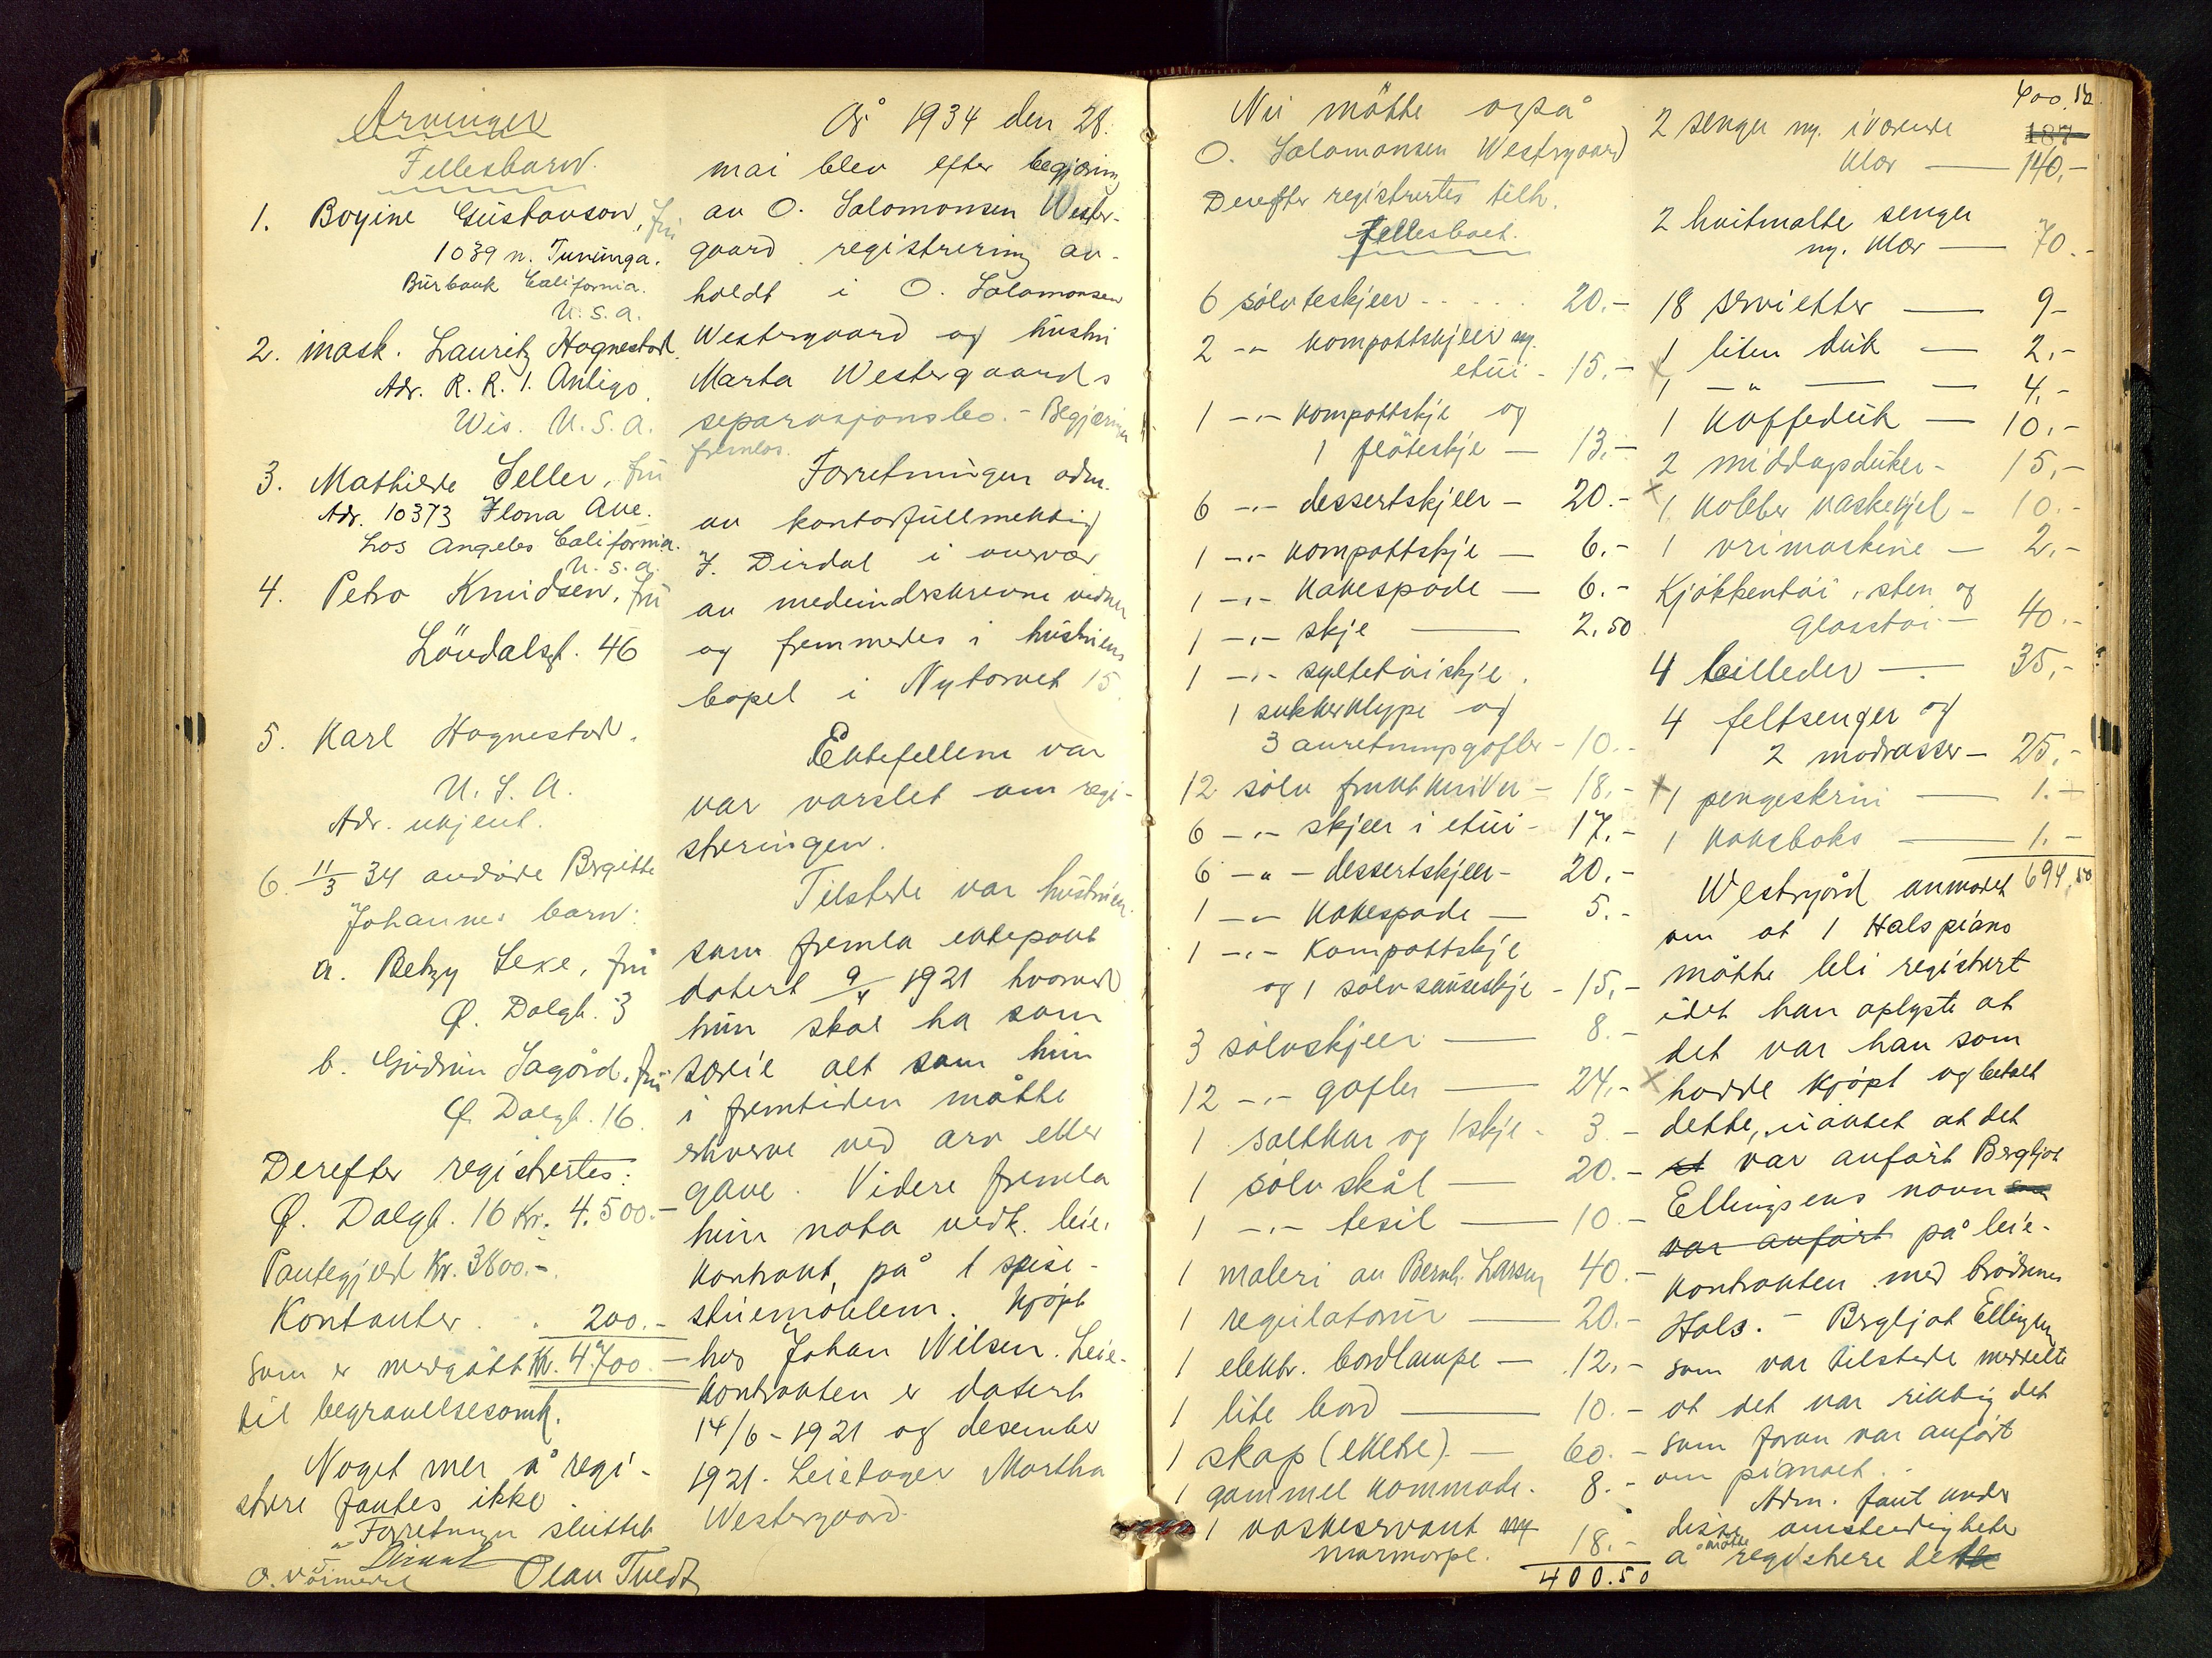 Arvinger
Fellesbarn.
1. Bogine Gustavson, fru
1039 n. Tununga.
Burbank California.
U.S.A.
2. mask. Lauritz Hognestad.
Adr. R. R. 1. Antigo.
Wis. U.S.A.
3. Mathilde Seller, fru
Adr. 10373 Ilona Ave.
Los Angeles California.
U.S.A.
4. Petra Knudsen, fru
Lövdalsgt. 46
5. Karl Hognestad.
U.S.A.
Adr. ukjent.
6. 11/3 34 avdøde Brgitte
Johannes barn:
a. Betzy Sexe, fru
Ø. Dalgt. 3
b. Gudrun Sagård, fru
Ø. Dalgt. 16.
Derefter registertes:
Ø. Dalgt. 16 Kr. 4.500.-
Pantegjeld Kr. 3800.-.
Kontanter . . 200.-
som er medgått Kr. 4700.-
til begravelsesomk.
Noget mer å regi-
strere fantes ikke.
Forretningen sluttet
Dirdal
Olav Tvedt
År 1934 den 28.
mai blev efter begjæring
av O. Salomonsen Wester-
gaard registrering av-
holdt i O. Salomonsen
Westergaard og hustru
Marta Westergaards
separasjonsbo. - Begjæringen
fremlas.
Forretningen adm.
av kontorfullmektig
J. Dirdal i overvær
av medunderskrevne vidner
og fremmedes i hustruens
bopel i Nytorvet 15.
Ektefellene var
var varslet om regi-
streringen.
Tilstede var hustruen.
som fremla ektepakt
datert 9/4 1921 hvorved
hun skal ha som
særeie alt som hun
i fremtiden måtte
erhverve ved arv eller
gave. Videre fremla
hun nota vedk. leie.
kontrakt, på 1 spise-
stuemöblem. kjöpt
hos Johan Nilsen. Leie-
kontrakten er datert
14/6 - 1921 og desember
1921. Leietager Martha
Westergaard.
Nu mötte også
O. Salomonsen Westergaard
Derefter registrertes tilh.
Fellesboet.
6 sölv teskjeer . . . . . 20.-
2 -"- kompottskjeer og
etui - 15.-
1 -"- kompottskje og
1 flöteskje - 13.-
6 -"- dessertskjeer - 20.-
1 -"- kompottskje - 6.-
1 -"- kakespade - 6.-
1 -"- skje - 2,50
1 -"- syltetöiskje.
1 sukkerklype og
3 anretningsgafler - 10.-
12 sölv fruktkniver - 18.-
6 -"- skjeer i etui - 17.-
6 -"- dessertskjeer - 20.-
1 -"- kakespade - 5.-
1 -"- kompottskje
og 1 sölv sauseskje - 15,-
3 sölvskjeer - 8.-
12 -"- gafler - 24.-
1 saltkar og 1 skje - 3.-
1 sölv skål - 20.-
1 -"- tesil - 10.-
1 maleri av Bernh. Larsen 40.-
1 regulatorur - 20.-
1 elektr. bordlampe - 12,-
1 lite bord - 10.-
1 skap (ekete) - 60.-
1 gammel kommode. 8.-
1 vaskeservant m/
marmorpl. 18.-
400.50
400.50
187
2 senger og iværende
klær - 140,-
2 hvitmalte senger
og klær - 70.-
18 servietter - 9-
1 liten duk - 2,-
x 1 -"- - 4,-
1 kaffeduk - 10.-
2 middagsduker - 15,-
x 1 kobber vaskekjel - 10.-
1 vrimaskine - 2,-
Kjökkentöi, sten og
glasstöi - 40.-
4 billeder - 35,-
4 feltsenger og
2 madrasser - 25,-
x 1 pengeskrin - 1.-
1 kakeboks - 1.-
694,50
Westergård anmodet
om at 1 Hals piano
måtte bli registrert
idet han oplyste at
det var han som
x hadde kjöpt og betalt
dette, uaktet at det
var anfört Bergljot
Ellingsens navn
var anfört på leie-
kontrakten med brödrene
Hals. - Bergljot Ellingsen
som var tilstede meddelte
at det var riktig det
som foran var anfört
om pianoet.
Adm. fant under
disse omstendigheter
å måtte registrere dette